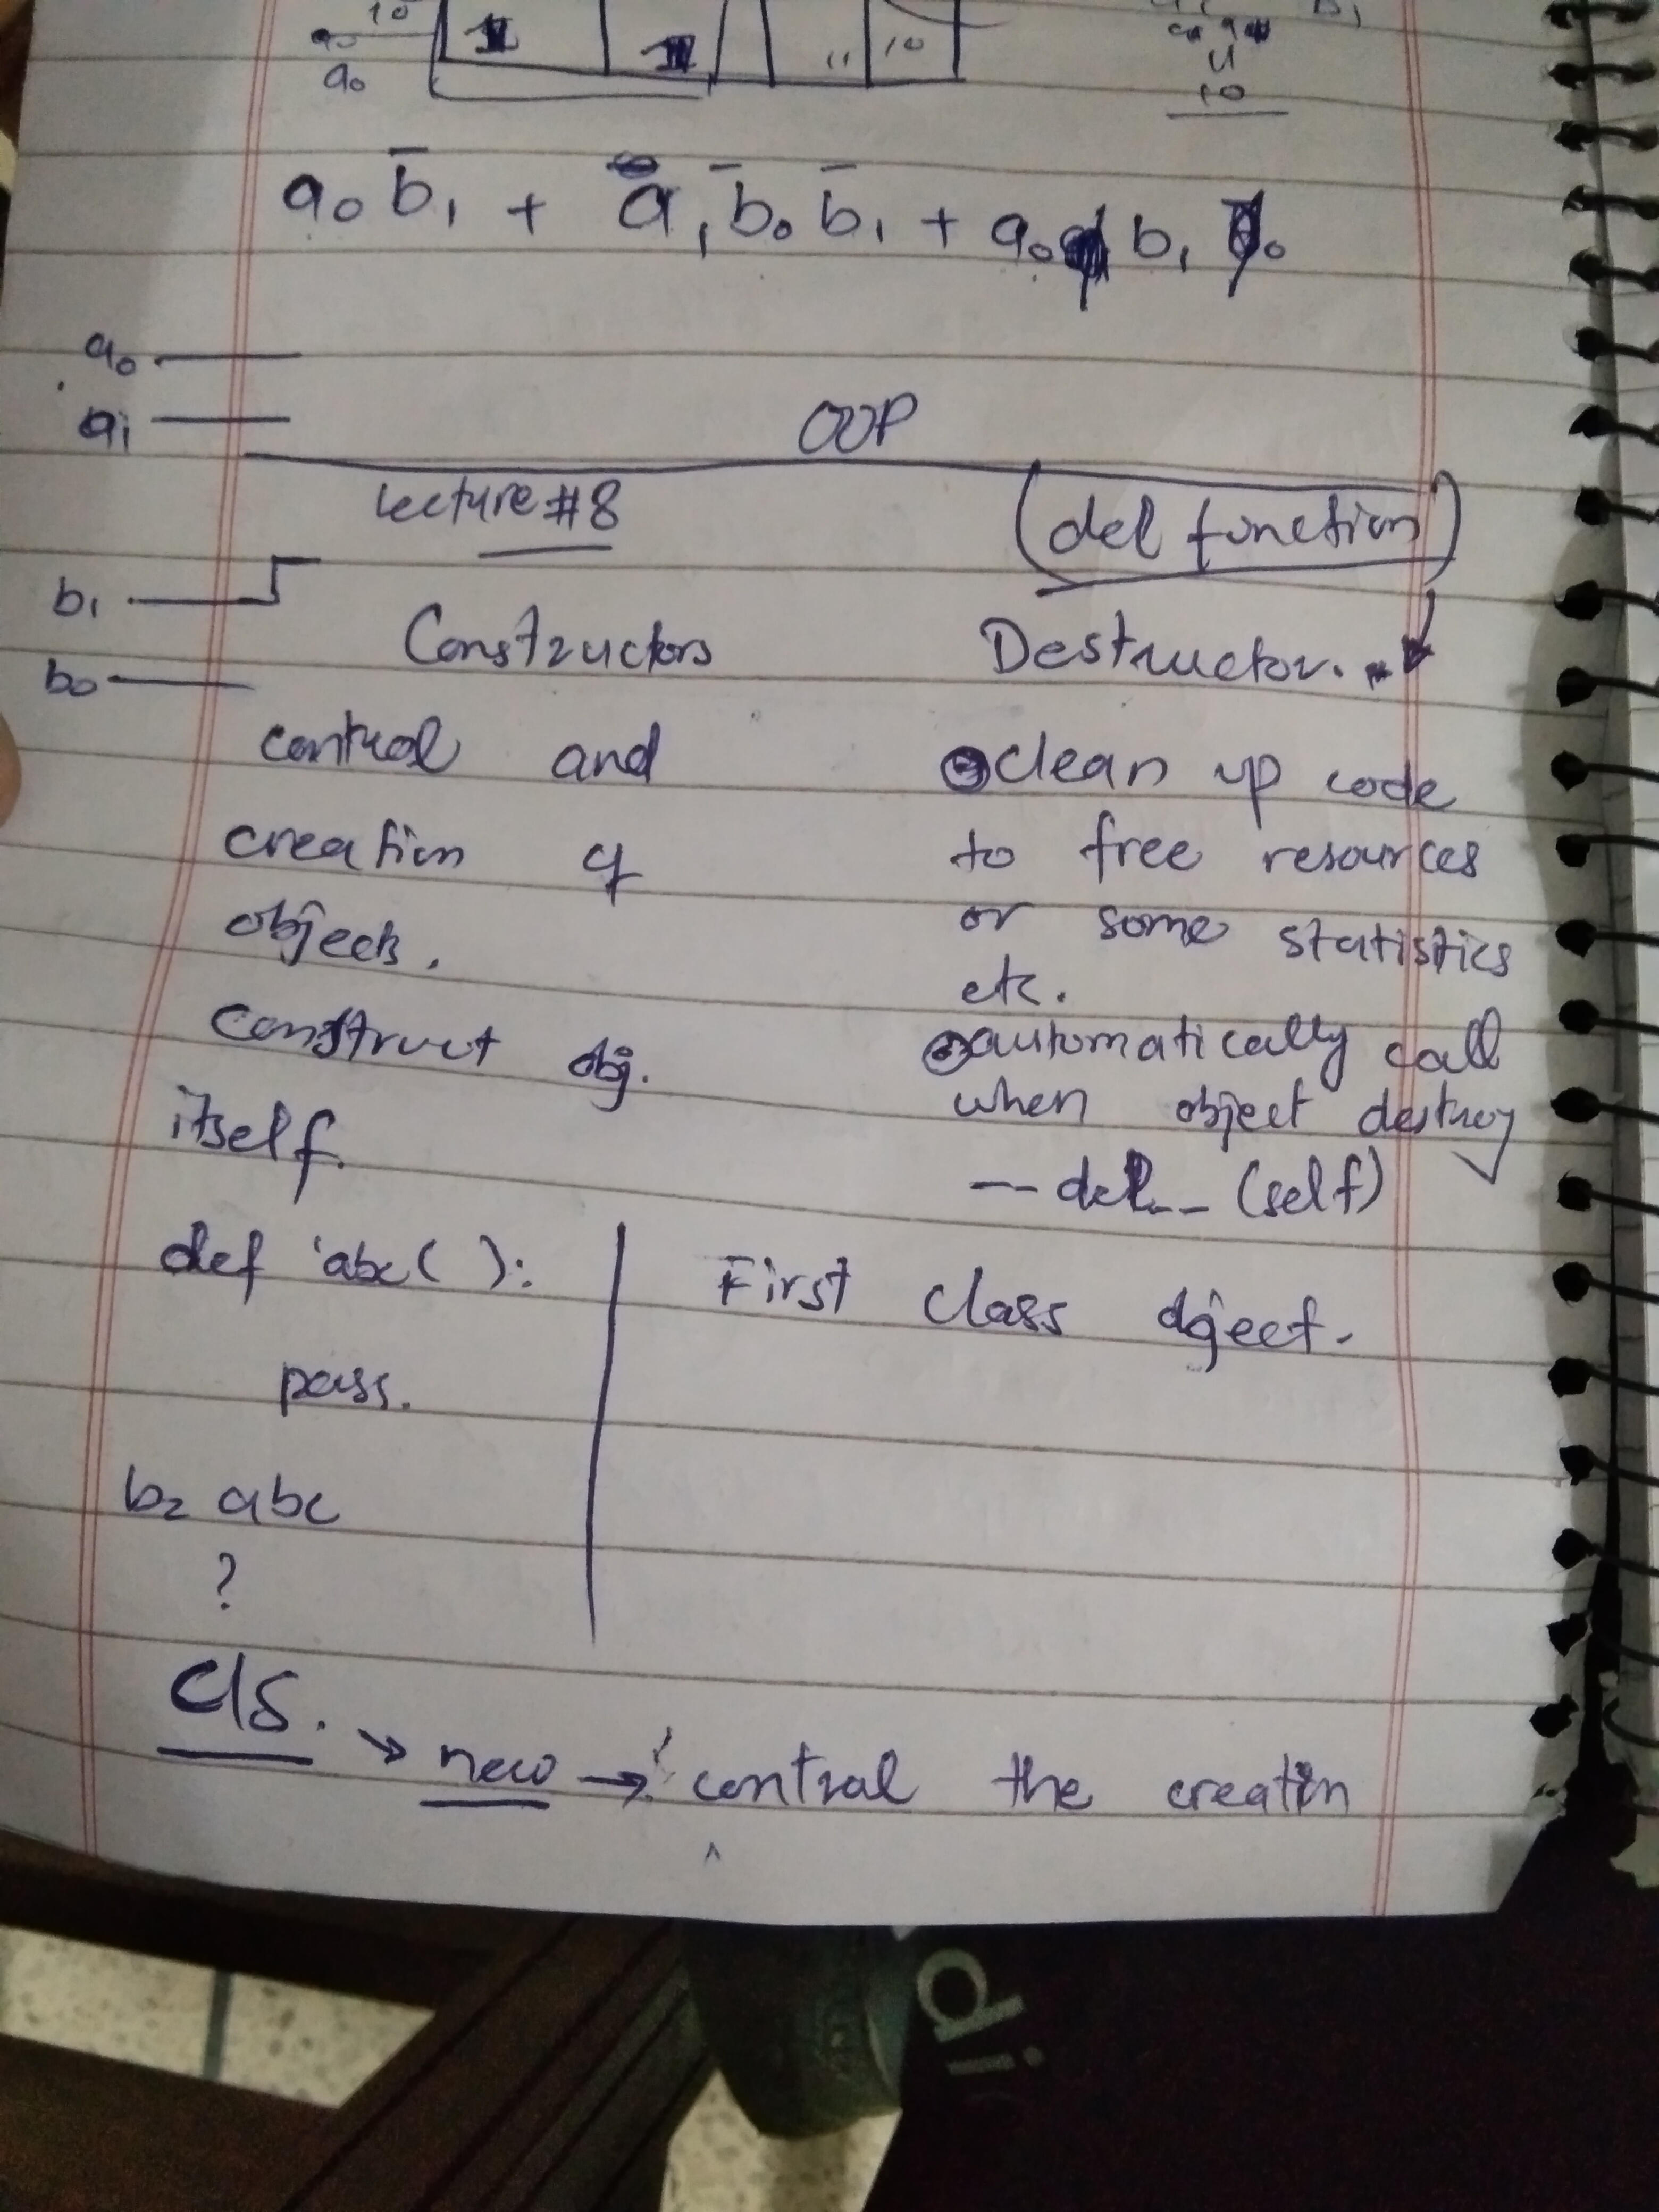 10
a₀
11 10
10
a₀ b̄₁ + ā₁ b̄₀ b̄₁ + a₀ b₁
a₀
a₁
OOP
Lecture #8
(del function)
b₁
b₀
Constructors
Destructor.
control and
creation of
objects.
construct obj.
itself.
clean up code
to free resources
or some statistics
etc.
automatically call
when object destroy
-- del -- (self)
def abc( ):
pass.
b = abc
?
First Class object.
cls. → new → control the creation
di